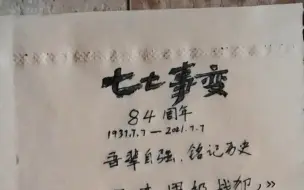 七七事变
84周年
1937.7.7—2021.7.7
吾辈自强,铭记历史